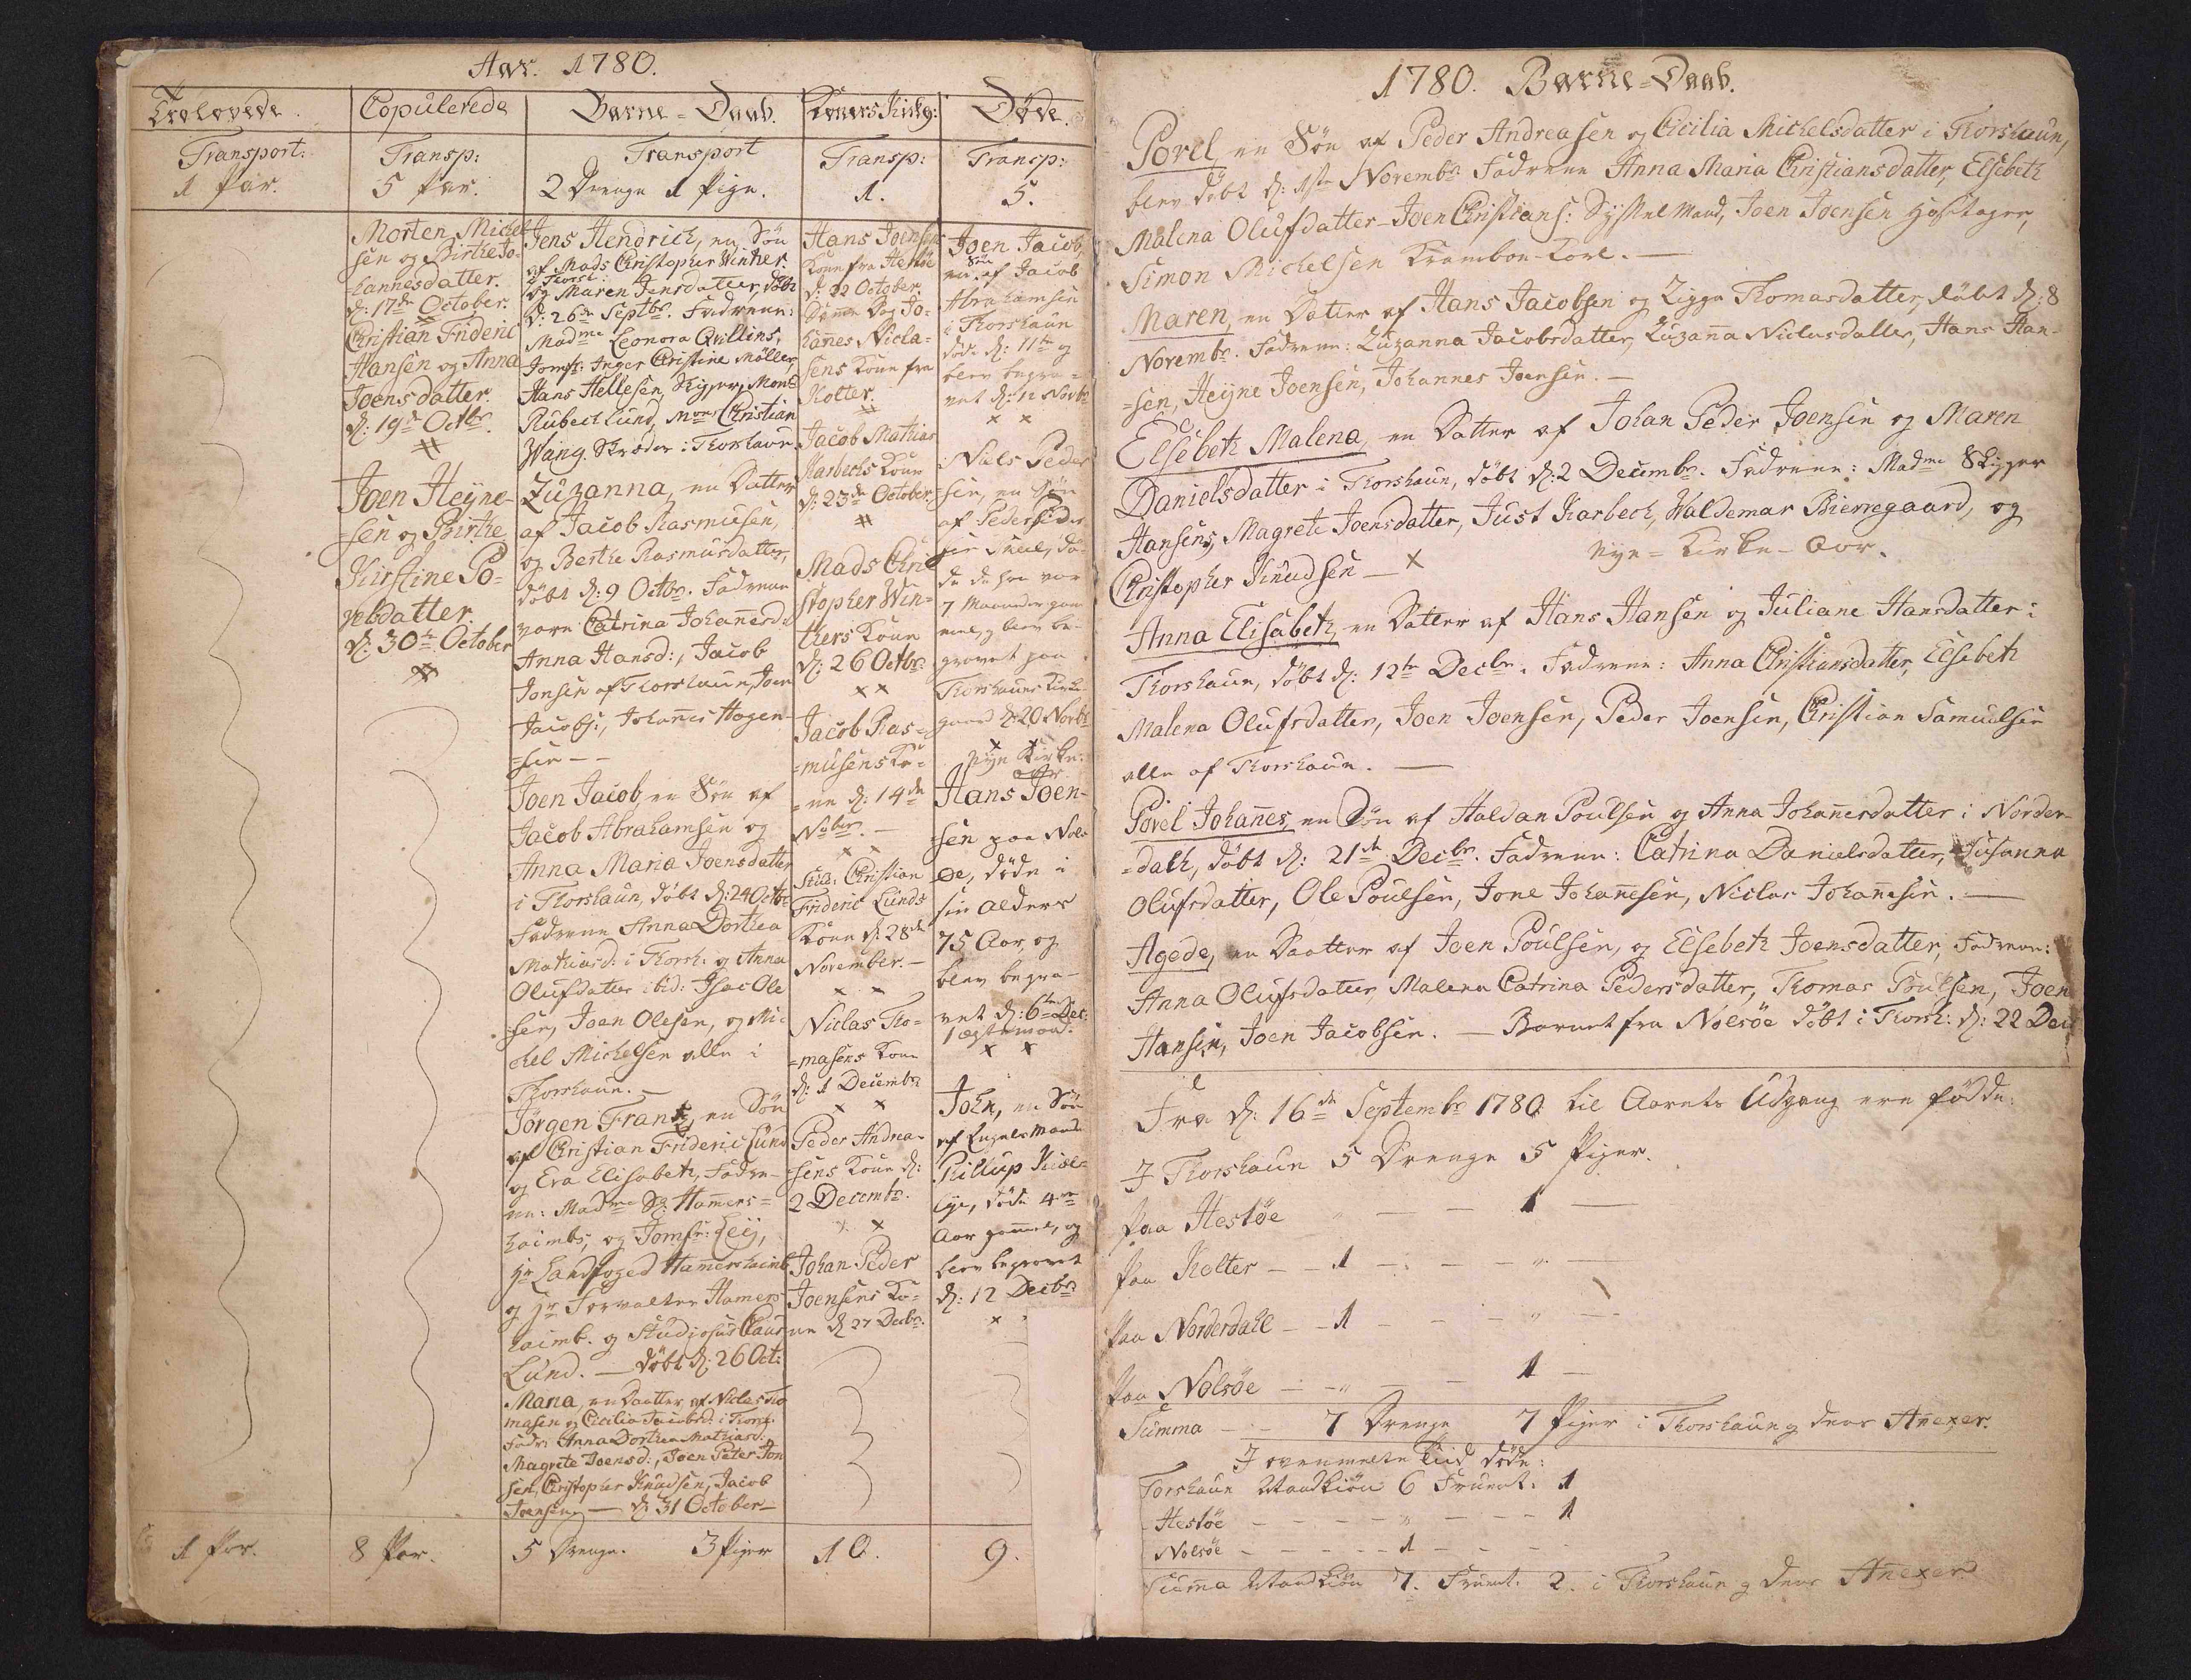 Aar. 1780.
Trolovede.
Transport:
1 Par.
1 Par.
Copulerede
Transp:
5 Par.
Morten Michel
sen og Birthe Jo-
hannesdatter.
d: 17de October.
Christian Frideric
Hansen og Anna
Joensdatter.
d: 19de Octbr.
Joen Heÿne-
-sen og Birthe
Kirstine Po-
velsdatter.
d: 30te October
8 Par.
Barne-Daab.
Transport
2 Drenge 1 Pige.
Jens Hendrich, en Søn
af Mads Christopher Winther
i Thorsh:
og Maren Jensdatter, døbt
d: 26de Septbr. Fadrene:
Madme Leonora Qvillins,
Jomfr: Inger Christine Møller,
Hans Hellesen, Skipper, Mons
Rubech Lund, Mons Christian
Wang. Skræder i Thorshavn.
Zuzanna, en Datter
af Jacob Rasmusen,
og Berthe Rasmusdatter,
døbt d: 9 Octbr. Fadrene
vare Catrina Johannesd:
Anna Hansd:, Jacob
Jonsen af Thorshaun, Joen
Jacobs:, Johannes Hagen-
=sen - -
Joen Jacob, en Søn af
Jacob Abrahamsen og
Anna Maria Joensdatter
i Thorshaun, døbt d: 24 Octbr
Fadrene Anna Dorthea
Mathiasd: i Thorsh: og Anna
Olufsdatter ibid: Isac Ole
-sen, Joen Olesen, og Mi-
chel Michelsen alle i
Thorshaun. -
Jørgen Frantz, en Søn
af Christian Frideric Lund
og Eva Elisabeth, Fadre-
ne: Madme Sl: Hamers=
haimbs, og Jomfr: Leÿ,
Hr Landfoged Hamershaimb
og Hr Forvalter Hamers
haimb. og Studiosus Claus
Lund. - døbt d: 26 Oct:
Maria, en Daatter af Niclas Tho
masen og Cicilia Jacobsd: i Thorsh.
Fadr: Anna Dorthea Mathiasd:
Magrete Joensd:, Joen Peter Jon
sen, Christopher Knudsen, Jacob
Joensen - d: 31 October -
5 Drenge. 3 Piger
Koners Kirkg:
Transp:
1.
Hans Joensens
Kone fra Hestøe
d: 22 October.
Samme Dag Jo-
hannes Nicla-
sens Kone fra
Kolter.
Jacob Mathias
Harbechs Kone
d: 23de October.
Mads Chri
stopher Win-
thers Kone
d: 26 Octbr.
Jacob Ras-
=musens Ko-
=ne d: 14de
Nvbr. -
Christian
Frideric Lunds
Kone d: 28de
November. -
Niclas Tho-
=masens Kone
d: 1 Decembr
Peder Andrea-
sens Kone d:
2 Decembr.
Johan Peder
Joensens Ko-
ne d: 27 Decbr.
10.
Døde.
Transp:
5.
Joen Jacob,
en Søn af Jacob
Abrahamsen
i Thorshaun
døde d: 11te og
blev begra-
vet d: 12 Novbr
Niels Peder
sen, en Søn
af Peder Peder
sen, dø-
de da han var
7 Maaneder gam
mel, og blev be-
gravet paa
Thorshauns Kirke-
gaard d: 20 Novbr
Nye Kirke-
Aar.
Hans Joen-
-sen paa Nols
øe, døde i
sin Alders
75 Aar og
blev begra-
vet d: 6te Dec:
1 ægtemand.
John, en Søn
af Engels Mand
Phillup
døde 4re
Aar gammel, og
blev begravet
d: 12 Decbr.
9.
1780. Barne-Daab.
Povel, en Søn af Peder Andreasen og Cicilia Michelsdatter i Thorshaun,
blev døbt d: 1ste Novembr. Fadrene Anna Maria Christiansdatter, Elsebeth
Malena Olufsdatter - Joen Christians: Syssel Mand, Joen Joensen
Simon Michelsen Krambou-Karl. -
Maren, en Datter af Hans Jacobsen og Zigga Thomasdatter, døbt d: 8
Novembr. Fadrene: Zuzanna Jacobsdatter, Zuzanna Niclasdatter, Hans Han-
=sen, Heÿne Joensen, Johannes Joensen. -
Elsebeth Malena, en Datter af Johan Peder Joensen og Maren
Danielsdatter i Thorshaun, døbt d: 2 Decembr. Fadrene: Madme Skipper
Hansens, Magrete Joensdatter, Just Harbech, Waldemar Bierregaard, og
Christopher Knudsen - ×
Nye-Kirke-Aar.
Anna Elisabeth, en Datter af Hans Hansen og Juliane Hansdatter i
Thorshaun, døbt d: 12te Decbr. Fadrene: Anna Christiansdatter, Elsebeth
Malena Olufsdatter, Joen Joensen, Peder Joensen, Christian Samuelsen
alle af Thorshaun. -
Povel Johannes, en Søn af Haldan Poulsen og Anna Johannesdatter i Norder-
=dahl, døbt d: 21de Decbr. Fadrene: Catrina Danielsdatter, Susanna
Olufsdatter, Ole Poulsen, Jone Johannesen, Niclas Johannesen. -
Agede, en Daatter af Joen Poulsen, og Elsebeth Joensdatter, Fadrene:
Anna Olufsdatter, Malena Catrina Pedersdatter, Thomas Poulsen, Joen
Hansen, Joen Jacobsen. - Barnet fra Nolsøe døbt i Thorsh: d: 22 Dec
Fra d: 16de Septembr 1780 til Aarets Udgang ere fødde:
I Thorshaun 5 Drenge 5 Piger.
Paa Hestøe " - - 1 -
Paa Kolter - - 1 - - - " -
Paa Norderdahl - - 1 - - - " -
Paa Nolsøe - - " - - 1 -
Summa - - 7 Drenge 7 Piger i Thorshaun og dens Anexer.
I ovenmelte Tiid døde:
Torshaun Mandkiøn 6 Fruent. 1
Hestøe - - - - - " - - - - 1
Nolsøe - - - - - 1 - - -
Summa Mandkiøn 7. Fruent. 2. i Thorshaun og dens Anexer.
Copulerede